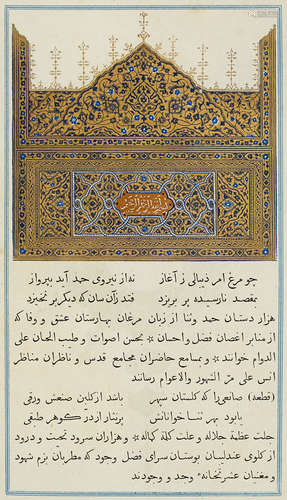 بسم الله الرحمن الرحیم
چو مرغ امر ذیبالی ز آغاز نه از نیروی حمد آید بپرواز
بمقصد نارسیده پر بریزد فتد زآن سان که دیگر بر نخیزد
هزار دستان حمد وثنا از زبان مرغان بهارستان عشق و وفا که
از منابر اغصان فضل و احسان ❊ بحسن اصوات و طیب الحان علی
الدوام خوانند ❊ و بمسامع حاضران مجامع قدس و ناظران مناظر
انس علی مرّ الشهور والاعوام رسانند
(قطعه) صانعی را که کلستان سپهر باشد از کلبن صنعش ورقی
بابود بهر ثنا خوانانش پرنثار از درّ و کوهر طبقی
جلت عظمة جلاله و علت کلمة کماله ❊ و هزاران سرود تحیت و درود
از کلوی عندلیبان بوستان سرای فضل وجود که مطربان بزم شهود
و مغنیان عشرتخانهٔ وجد و وجودند